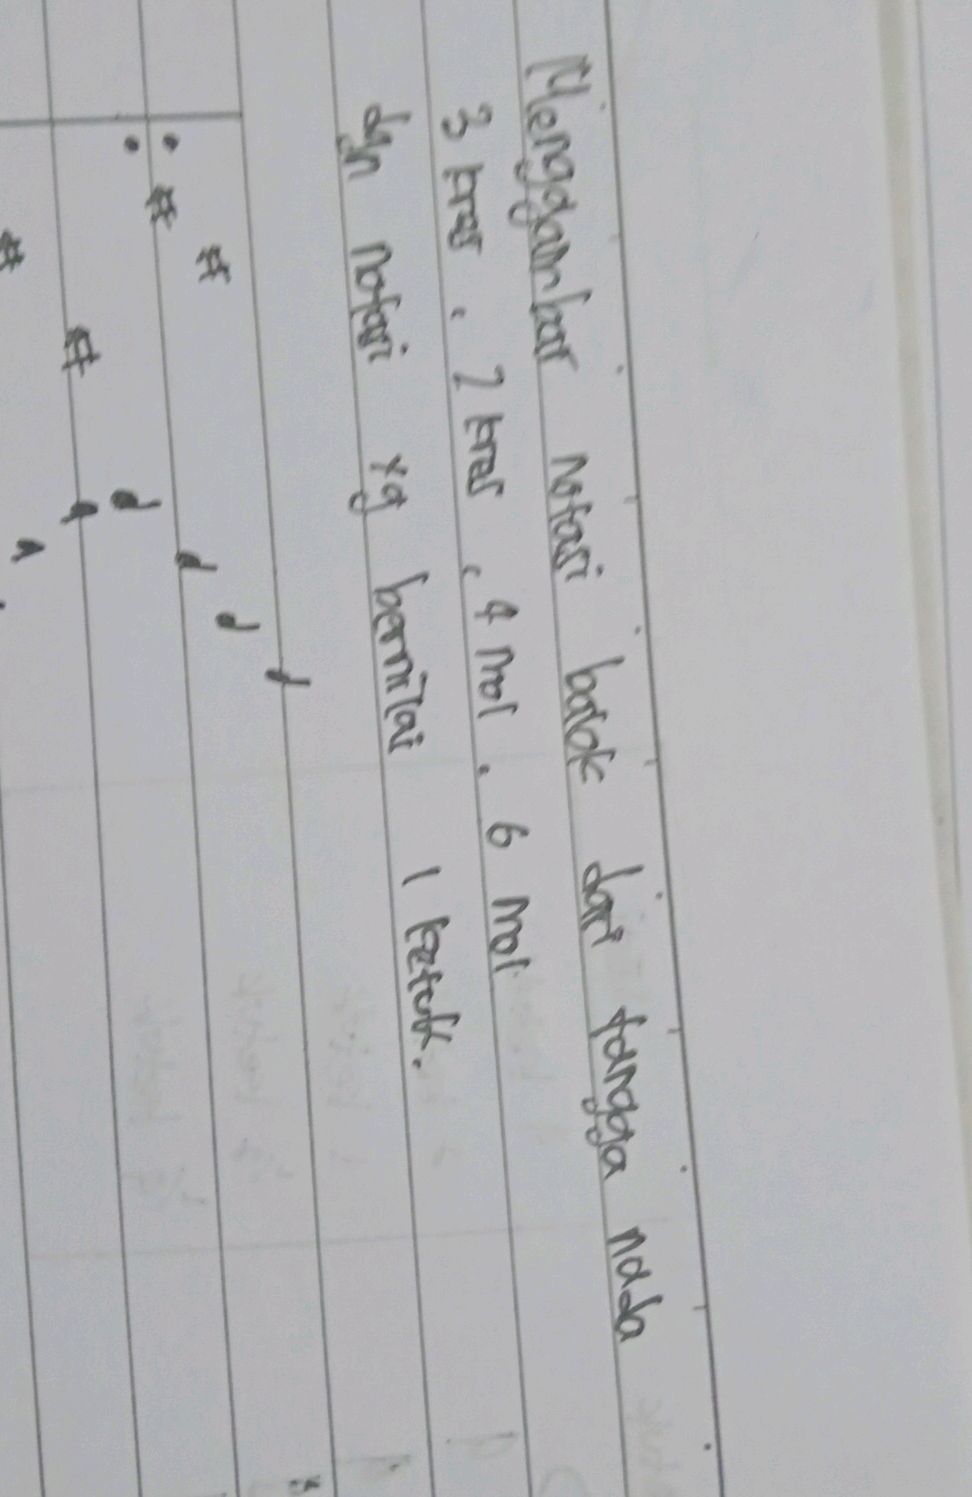 Menggambar notasi balok dari tangga nada
3 kres, 2 kres, 4 mol, 6 mol
dgn notasi yg bernilai 1 ketuk.